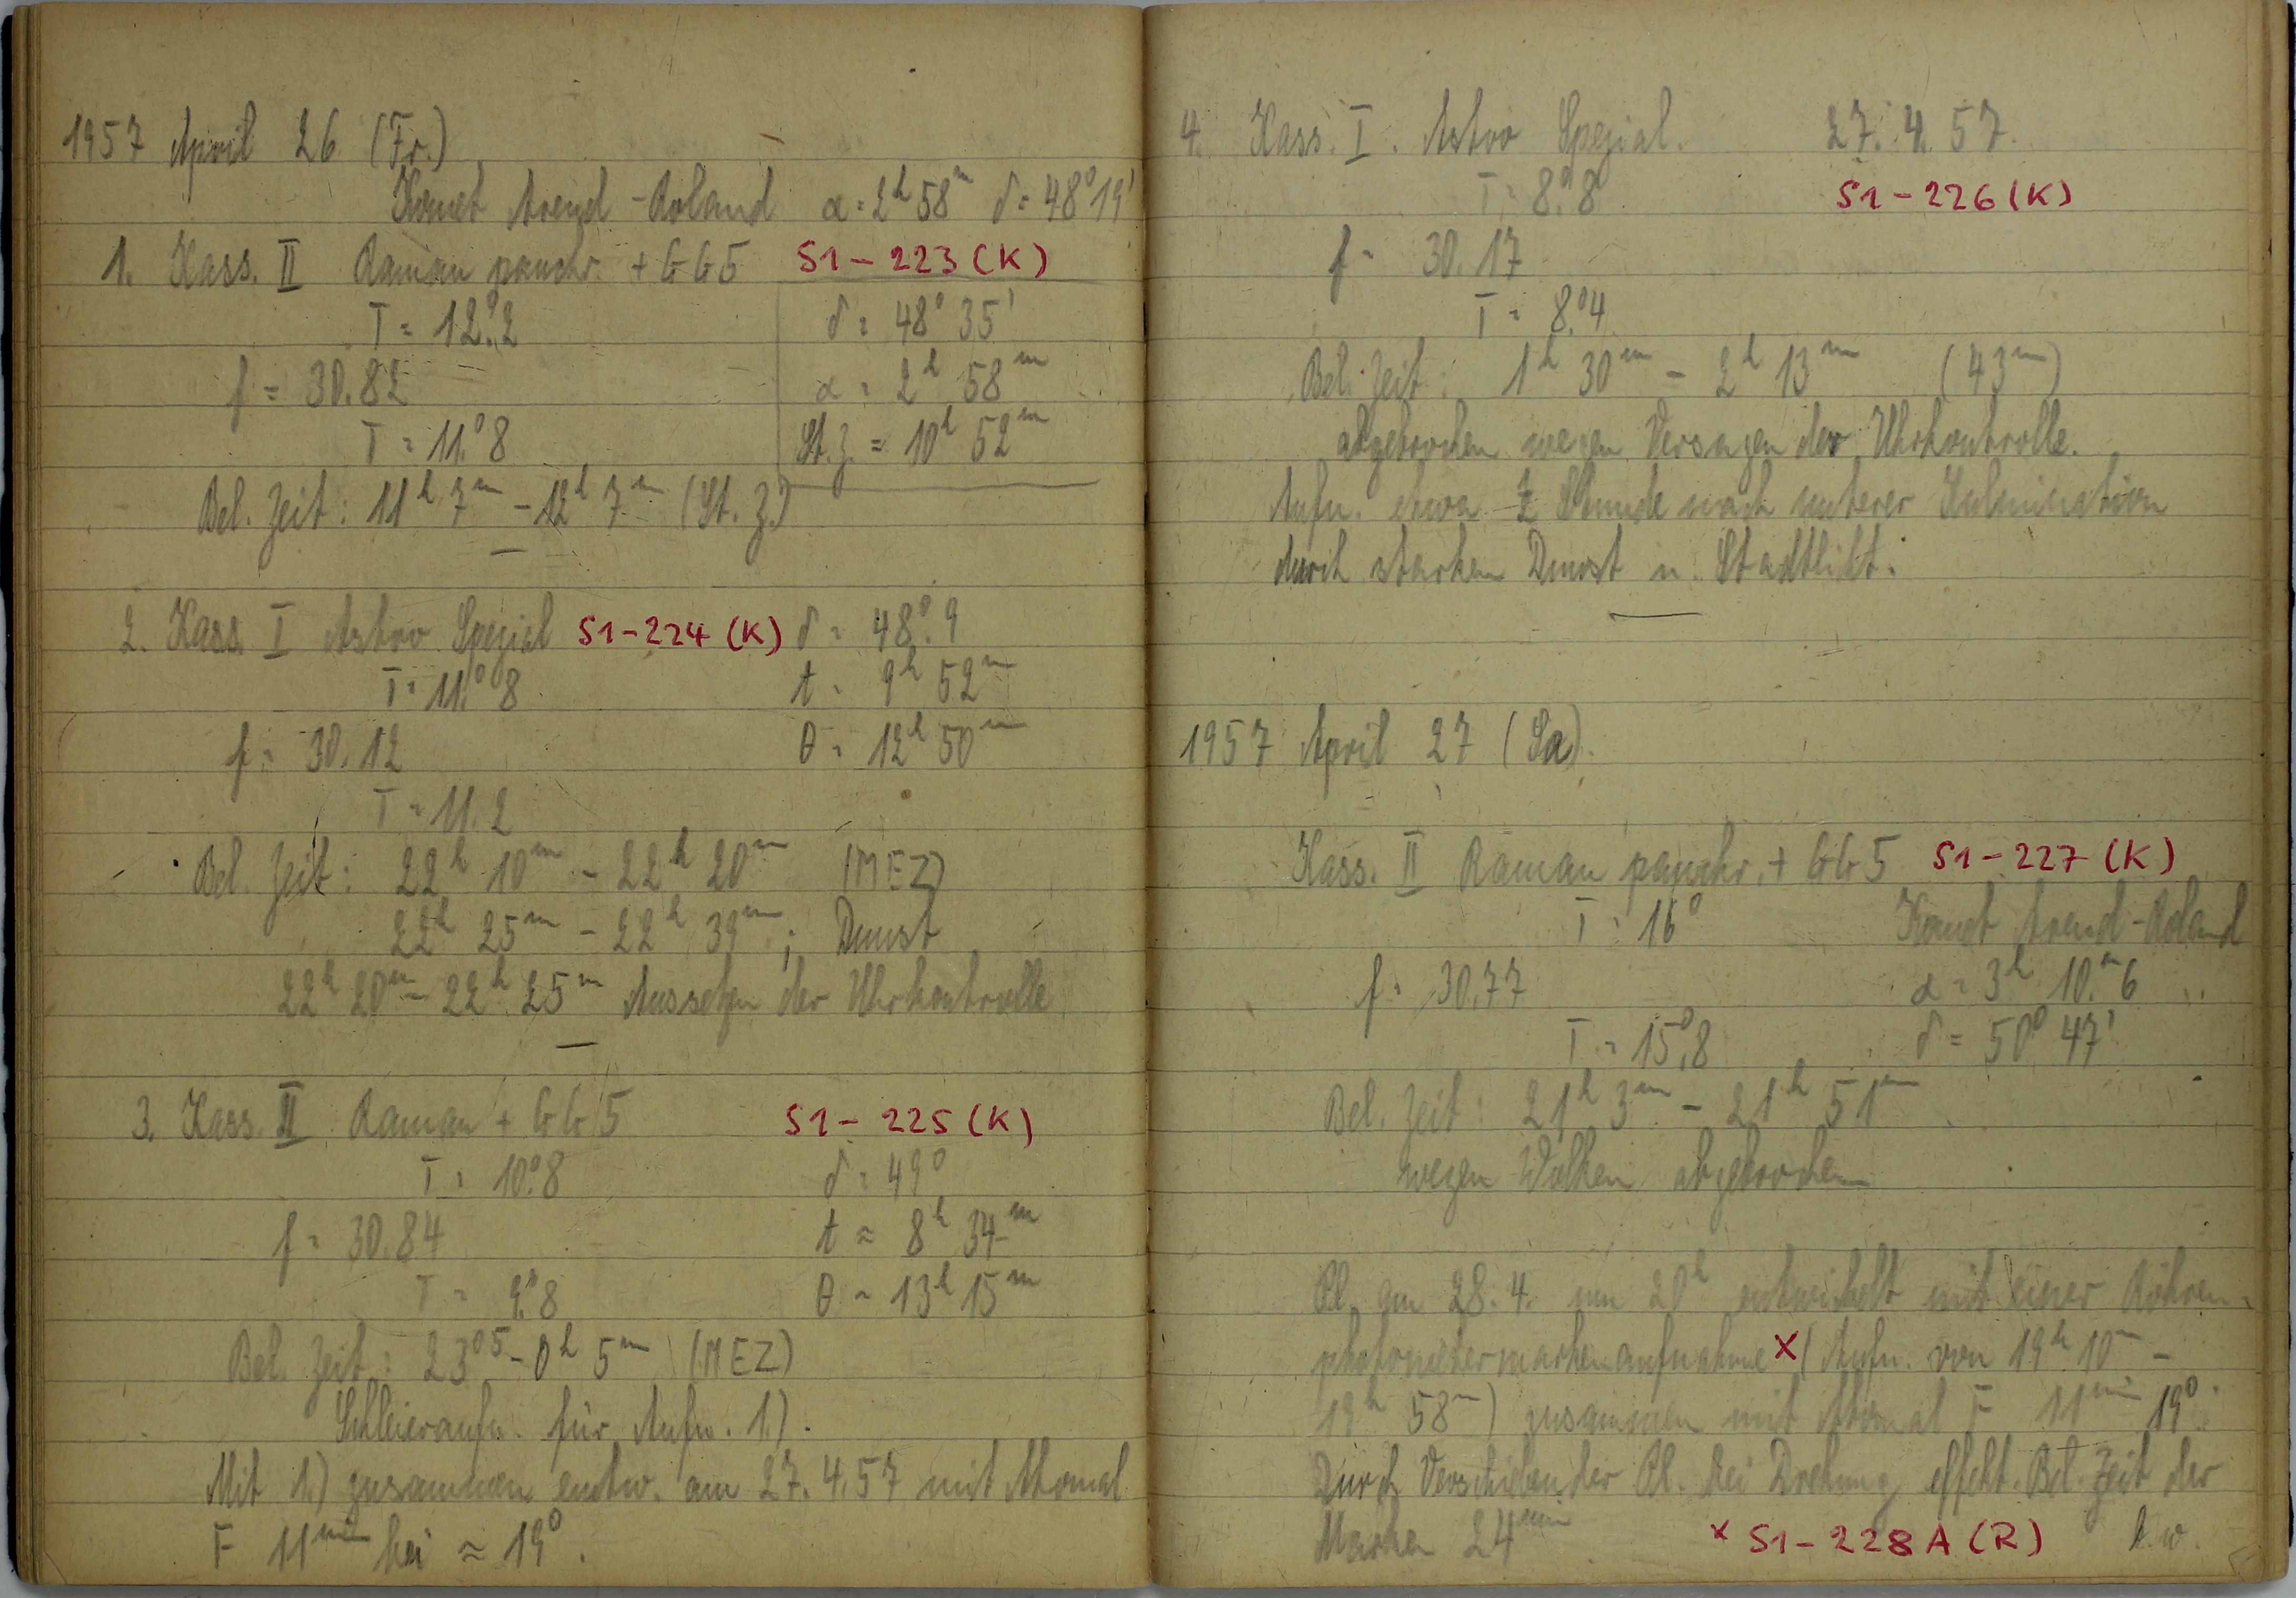 1957 April 26 (Fr.)
Komet Arend-Roland α = 2h 58m δ = 48° 19'
1. Kass. II Raman panchr. + GG5 S1-223 (K)
T = 12.°2 δ = 48° 35'
f = 30.82 α = 2h 58m
T = 11.°8 St. Z. = 10h 52m
Bel. Zeit: 11h 7m - 12h 7m (St. Z.)
2. Kass. I Astro Spezial S1-224 (K) δ = 48.°9
T = 11.°8 t = 9h 52m
f = 30.12 θ = 12h 50m
T = 11.2
Bel. Zeit: 22h 10m - 22h 20m (MEZ)
22h 25m - 22h 39m; Dunst
22h 20m - 22h 25m Aussetzen der Uhrkontrolle
3. Kass. II Raman + GG5 S1-225 (K)
T = 10.°8 δ = 49°
f = 30.84 t ≈ 8h 34m
T = 9.°8 θ ~ 13h 15m
Bel. Zeit: 23 05 - 0h 5m (MEZ)
Schleieraufn. für Aufn. 1.)
Mit 1.) zusammen entw. am 27.4.57 mit Atomal
F 11min bei ≈ 19°.
4. Kass. I. Astro Spezial. 27.4.57.
T = 8.°8 S1-226 (K)
f = 30.17
T = 8.°4
Bel. Zeit: 1h 30m - 2h 13m (43m)
abgebrochen wegen Versagen der Uhrkontrolle.
Aufn. etwa Stunde nach unterer Kulmination
durch starken Dunst u. Stadtlicht.
1957 April 27 (Sa).
Kass. II Raman panchr. + GG5 S1-227 (K)
T = 16° Komet Arend-Roland
f = 30.77 α = 3h 10.m6
T = 15.°8 δ = 50° 47'
Bel. Zeit: 21h 3m - 21h 51m
wegen Wolken abgebrochen
Pl. am 28.4. um 20h entwickelt mit einer Röhren-
photometermarkenaufnahme x (Aufn. von 19h 10m -
19h 58m) zusammen mit Atomal F 11min 19°.
Durch Verschieben der Pl. bei Drehung effekt. Bel. Zeit der
Marken 24min x S1-228 A (R)